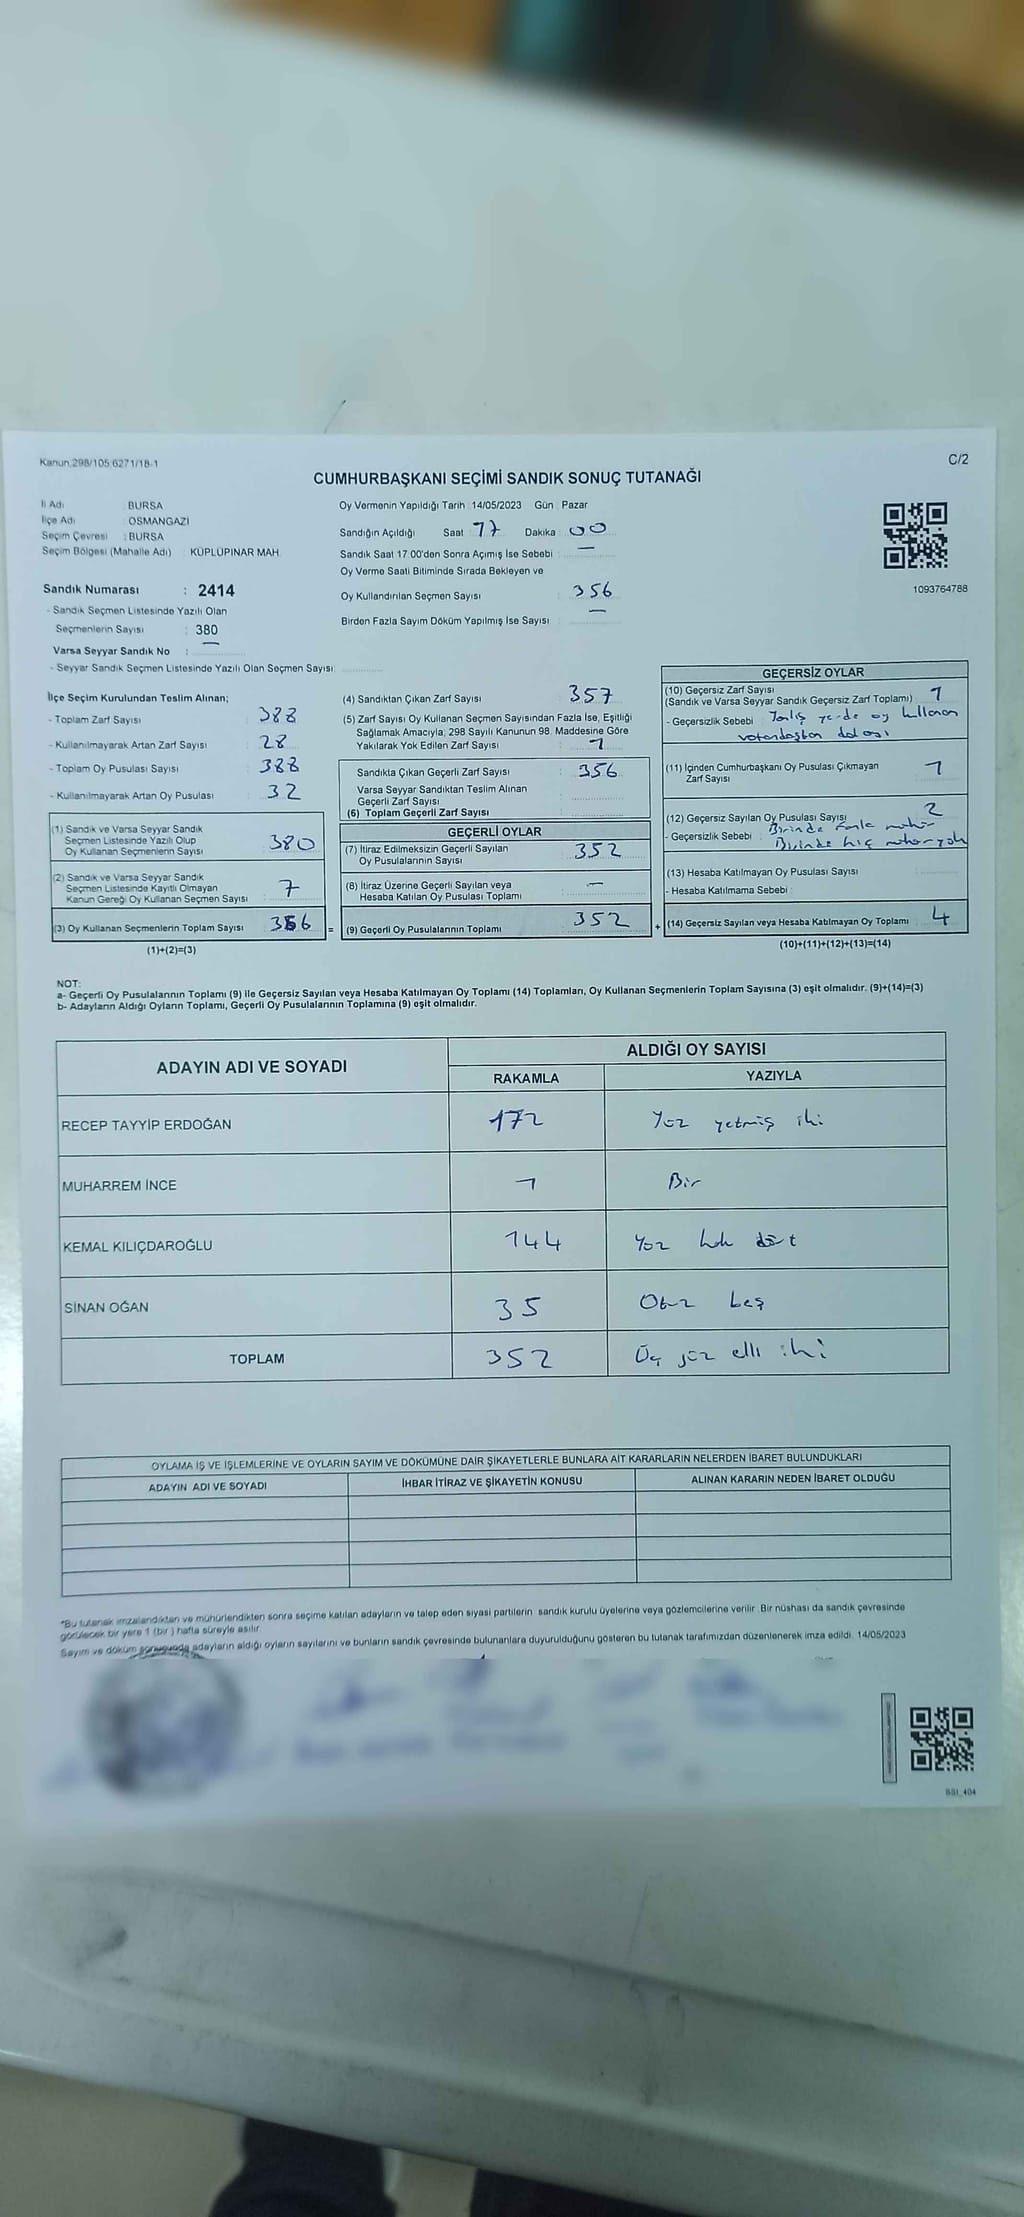 Kanun:298/105 6271/18-1
C/2
CUMHURBAŞKANI SEÇİMİ SANDIK SONUÇ TUTANAĞI
İl Adı : BURSA
İlçe Adı : OSMANGAZİ
Seçim Çevresi : BURSA
Seçim Bölgesi (Mahalle Adı) : KÜPLÜPINAR MAH.
Sandık Numarası : 2414
- Sandık Seçmen Listesinde Yazılı Olan
Seçmenlerin Sayısı : 380
Varsa Seyyar Sandık No : —
- Seyyar Sandık Seçmen Listesinde Yazılı Olan Seçmen Sayısı:
Oy Vermenin Yapıldığı Tarih : 14/05/2023 Gün : Pazar
Sandığın Açıldığı Saat 17 Dakika : 00
Sandık Saat 17:00'den Sonra Açımış İse Sebebi : —
Oy Verme Saati Bitiminde Sırada Bekleyen ve
Oy Kullandırılan Seçmen Sayısı : 356
Birden Fazla Sayım Döküm Yapılmış İse Sayısı : —
1093764788
İlçe Seçim Kurulundan Teslim Alınan;
- Toplam Zarf Sayısı : 388
- Kullanılmayarak Artan Zarf Sayısı : 28
- Toplam Oy Pusulası Sayısı : 388
- Kullanılmayarak Artan Oy Pusulası : 32
(1) Sandık ve Varsa Seyyar Sandık
Seçmen Listesinde Yazılı Olup
Oy Kullanan Seçmenlerin Sayısı : 380
(2) Sandık ve Varsa Seyyar Sandık
Seçmen Listesinde Kayıtlı Olmayan
Kanun Gereği Oy Kullanan Seçmen Sayısı : 7
(3) Oy Kullanan Seçmenlerin Toplam Sayısı 356 =
(1)+(2)=(3)
(4) Sandıktan Çıkan Zarf Sayısı : 357
(5) Zarf Sayısı Oy Kullanan Seçmen Sayısından Fazla İse, Eşitliği
Sağlamak Amacıyla; 298 Sayılı Kanunun 98. Maddesine Göre
Yakılarak Yok Edilen Zarf Sayısı : 1
Sandıkta Çıkan Geçerli Zarf Sayısı : 356
Varsa Seyyar Sandıktan Teslim Alınan
Geçerli Zarf Sayısı :
(6) Toplam Geçerli Zarf Sayısı :
GEÇERLİ OYLAR
(7) İtiraz Edilmeksizin Geçerli Sayılan
Oy Pusulalarının Sayısı : 352
(8) İtiraz Üzerine Geçerli Sayılan veya
Hesaba Katılan Oy Pusulası Toplamı : —
(9) Geçerli Oy Pusulalarının Toplamı : 352 +
GEÇERSİZ OYLAR
(10) Geçersiz Zarf Sayısı
(Sandık ve Varsa Seyyar Sandık Geçersiz Zarf Toplamı) : 1
- Geçersizlik Sebebi : Yanlış yerde oy kullanan
vatandaştan dolayı
(11) İçinden Cumhurbaşkanı Oy Pusulası Çıkmayan
Zarf Sayısı : 1
(12) Geçersiz Sayılan Oy Pusulası Sayısı : 2
- Geçersizlik Sebebi : Birinde fazla mühür
Birinde hiç mühür yok
(13) Hesaba Katılmayan Oy Pusulası Sayısı :
- Hesaba Katılmama Sebebi :
(14) Geçersiz Sayılan veya Hesaba Katılmayan Oy Toplamı : 4
(10)+(11)+(12)+(13)=(14)
NOT:
a- Geçerli Oy Pusulalarının Toplamı (9) ile Geçersiz Sayılan veya Hesaba Katılmayan Oy Toplamı (14) Toplamları, Oy Kullanan Seçmenlerin Toplam Sayısına (3) eşit olmalıdır. (9)+(14)=(3)
b- Adayların Aldığı Oyların Toplamı, Geçerli Oy Pusulalarının Toplamına (9) eşit olmalıdır.
ADAYIN ADI VE SOYADI
ALDIĞI OY SAYISI
RAKAMLA YAZIYLA
RECEP TAYYİP ERDOĞAN 172 Yüz yetmiş iki
MUHARREM İNCE 1 Bir
KEMAL KILIÇDAROĞLU 144 Yüz kırk dört
SİNAN OĞAN 35 Otuz beş
TOPLAM 352 Üç yüz elli iki
OYLAMA İŞ VE İŞLEMLERİNE VE OYLARIN SAYIM VE DÖKÜMÜNE DAİR ŞİKAYETLERLE BUNLARA AİT KARARLARIN NELERDEN İBARET BULUNDUKLARI
ADAYIN ADI VE SOYADI İHBAR İTİRAZ VE ŞİKAYETİN KONUSU ALINAN KARARIN NEDEN İBARET OLDUĞU
*Bu tutanak imzalandıktan ve mühürlendikten sonra seçime katılan adayların ve talep eden siyasi partilerin sandık kurulu üyelerine veya gözlemcilerine verilir. Bir nüshası da sandık çevresinde
görülecek bir yere 1 (bir) hafta süreyle asılır.
Sayım ve döküm sonucunda adayların aldığı oyların sayılarını ve bunların sandık çevresinde bulunanlara duyurulduğunu gösteren bu tutanak tarafımızdan düzenlenerek imza edildi. 14/05/2023